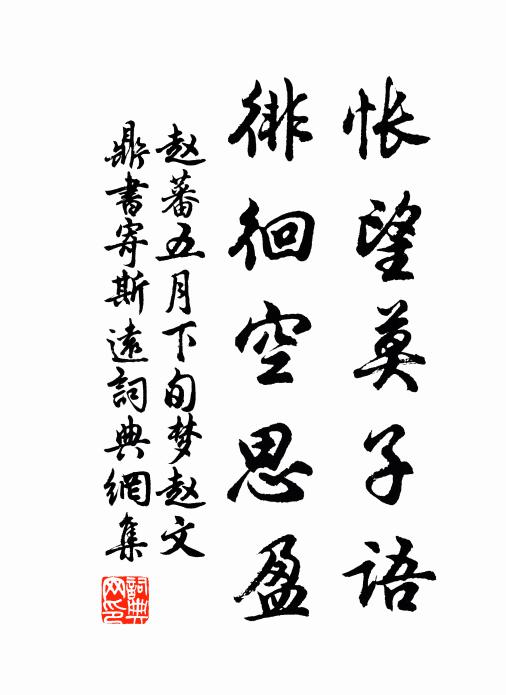 怅望莫子语
徘徊空思盈
赵蕃五月下旬梦赵文
鼎书寄斯远词典网集